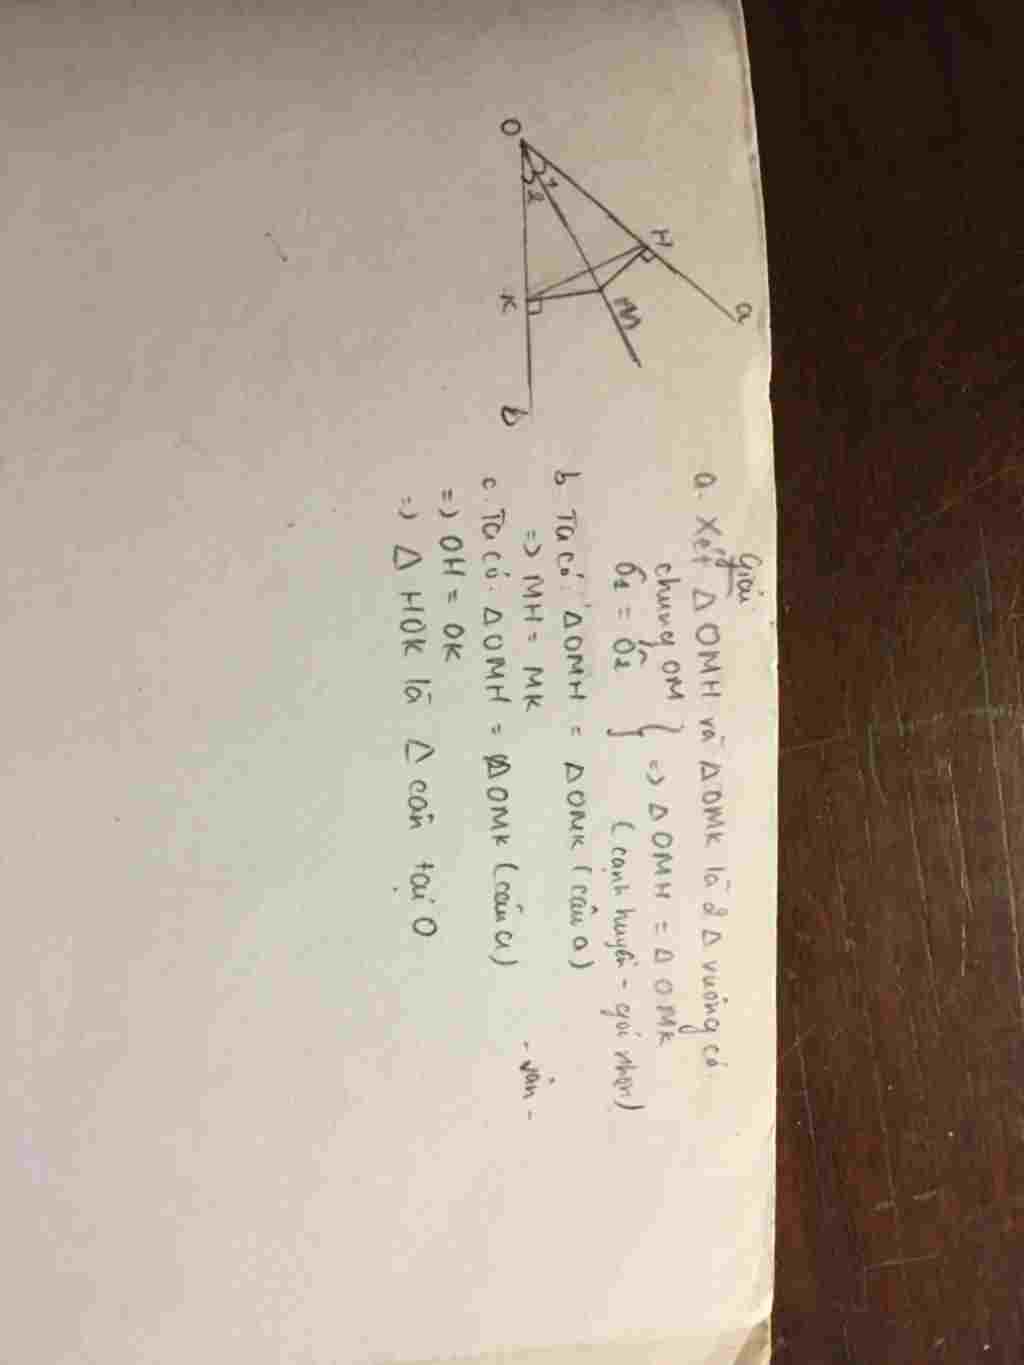 O
1
2
H
a
M
K
b
Giải
a. Xét Δ OMH và Δ OMK là 2 Δ vuông có
chung OM } => Δ OMH = Δ OMK
Ô1 = Ô2 (cạnh huyền - góc nhọn)
b. Ta có: Δ OMH = Δ OMK (câu a)
=> MH = MK
c. Ta có: Δ OMH = Δ OMK (câu a)
=> OH = OK
- vân -
=> Δ HOK là Δ cân tại O